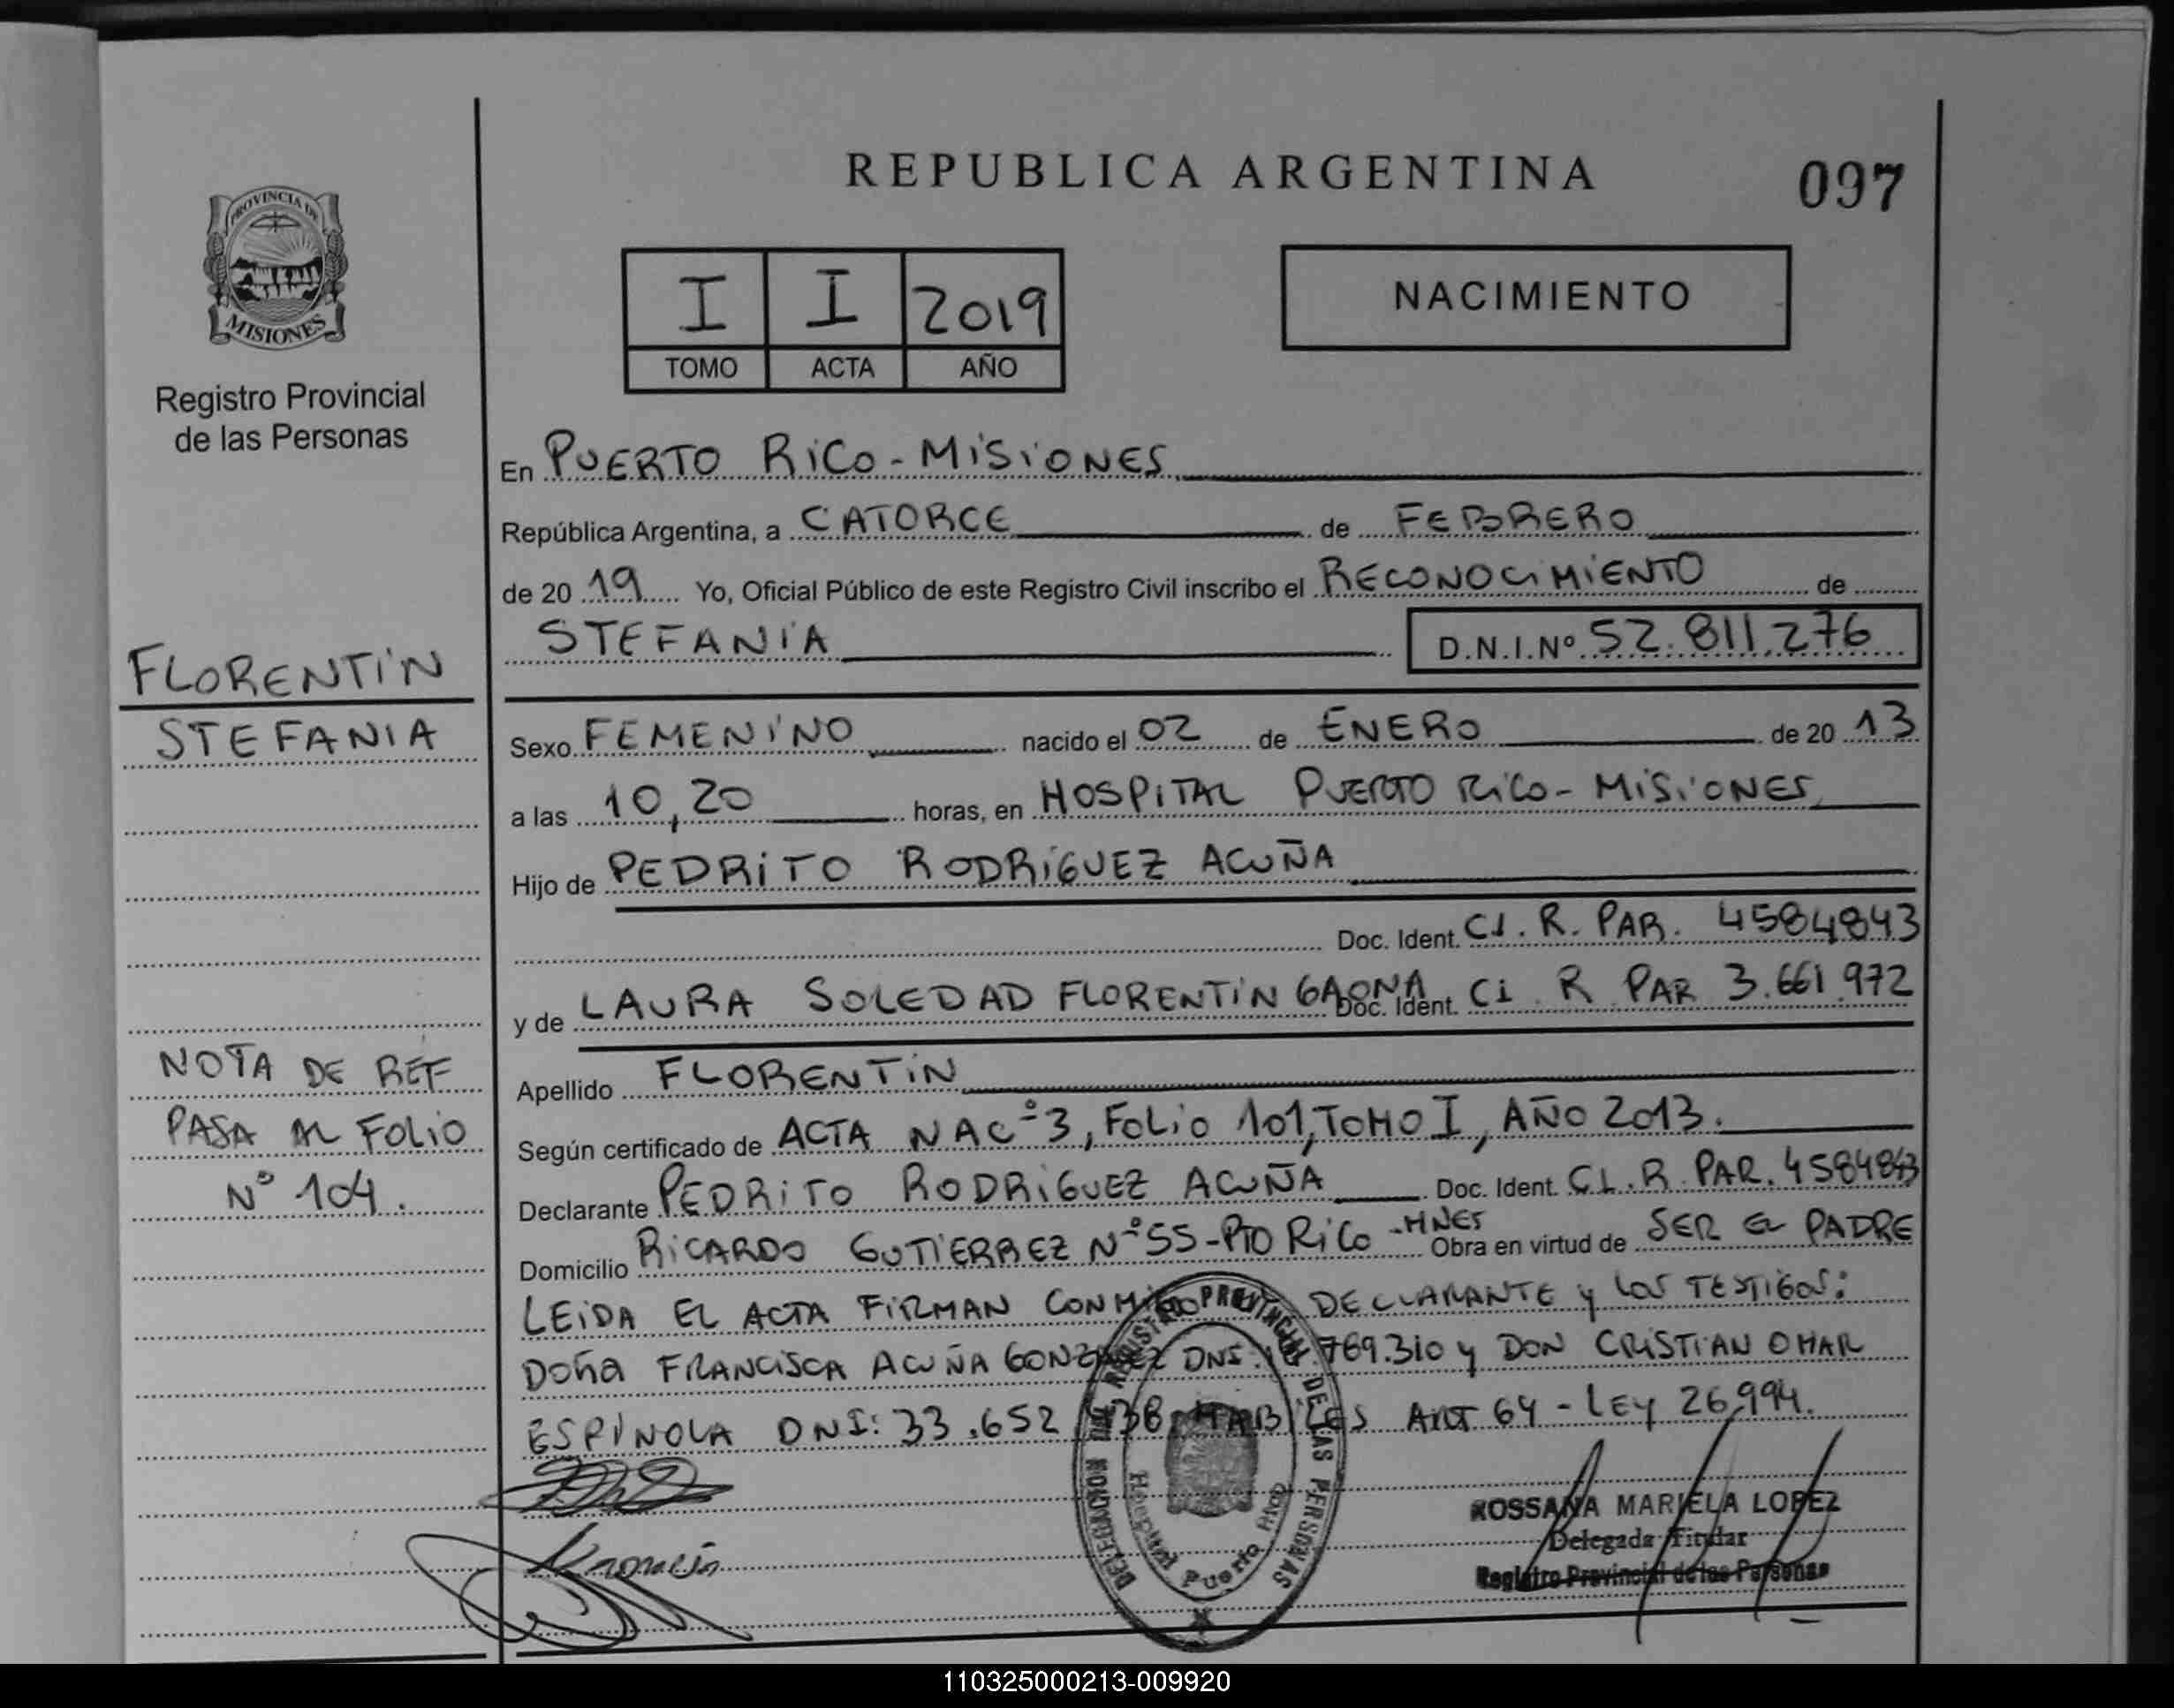 REPUBLICA ARGENTINA
097
PROVINCIA DE
MISIONES
Registro Provincial
de las Personas
I I 2019
TOMO ACTA AÑO
NACIMIENTO
En PUERTO RICO - MISIONES
República Argentina, a CATORCE de FEBRERO
de 20 19 Yo, Oficial Público de este Registro Civil inscribo el RECONOCIMIENTO de
STEFANIA D.N.I.Nº 52.811.276
FLORENTIN
STEFANIA
Sexo FEMENINO nacido el 02 de ENERO de 20 13
a las 10,20 horas, en HOSPITAL PUERTO RICO - MISIONES
Hijo de PEDRITO RODRIGUEZ ACUÑA
Doc. Ident. CI. R. PAR. 4584843
y de LAURA SOLEDAD FLORENTIN GAONA Doc. Ident. CI R PAR 3.661.972
Apellido FLORENTIN
Según certificado de ACTA NAC º 3, FOLIO 101, TOMO I, AÑO 2013.
Declarante PEDRITO RODRIGUEZ ACUÑA Doc. Ident. CI. R. PAR. 4584843
Domicilio RICARDO GUTIERREZ Nº 55 - PTO RICO - MNES Obra en virtud de SER EL PADRE
NOTA DE REF
PASA AL FOLIO
Nº 104.
LEIDA EL ACTA FIRMAN CONMIGO DECLARANTE y LOS TESTIGOS:
DOÑA FRANCISCA ACUÑA GONZALEZ DNI: 769.310 y DON CRISTIAN OMAR
ESPINOLA DNI: 33.652 HABILES ART 64 - LEY 26.994.
DELEGACION DEL REGISTRO PROVINCIAL DE LAS PERSONAS
Hospital Puerto Rico
ROSSANA MARIELA LOPEZ
Delegada Titular
Registro Provincial de las Personas
110325000213-009920